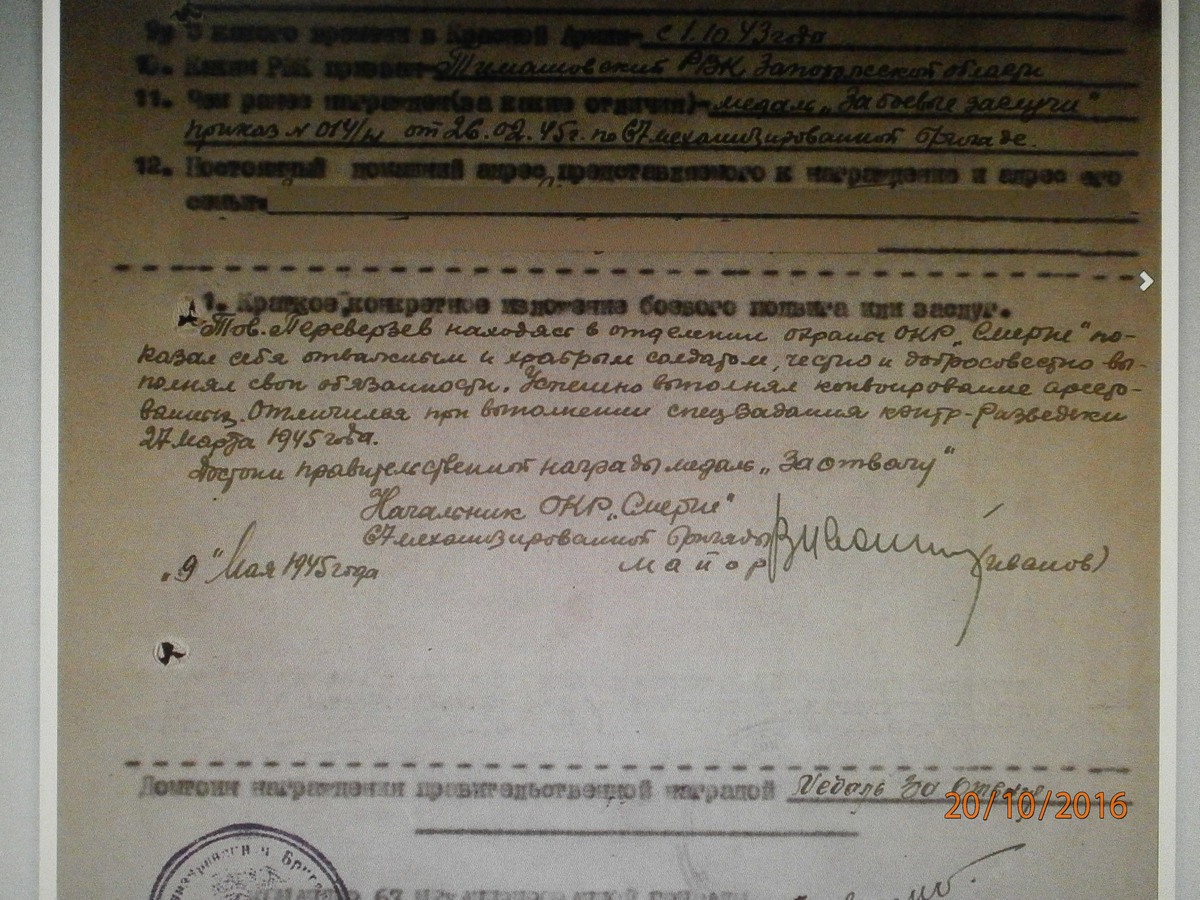 9. С какого времени в Красной Армии- с 1.10.43 года
10. Каким РВК призван- РВК Запорожской области
11. Чем ранее награжден(за какие отличия)- медаль „За боевые заслуги"
приказ N 014/н от 26.02.45г. по 67 механизированной бригаде.
12. Постоянный домашний адрес представляемого к награждению и адрес его
семьи-
1. Краткое, конкретное изложение боевого подвига или заслуг.
Тов. Переверзев находясь в отделении охраны ОКР „Смерш" по-
казал себя отважным и храбрым солдатом, честно и добросовестно вы-
полнял свои обязанности. Успешно выполнял конвоирование аресто-
ванных. Отличился при выполнении спецзадания контр-разведки
27 марта 1945 года.
Достоин правительственной награды медаль „За отвагу"
Начальник ОКР „Смерш"
67 механизированной бригады
майор (иванов)
„9" Мая 1945 года
Достоин награждения правительственной наградой Медаль За Отвагу
20/10/2016
67 механизированной бригады